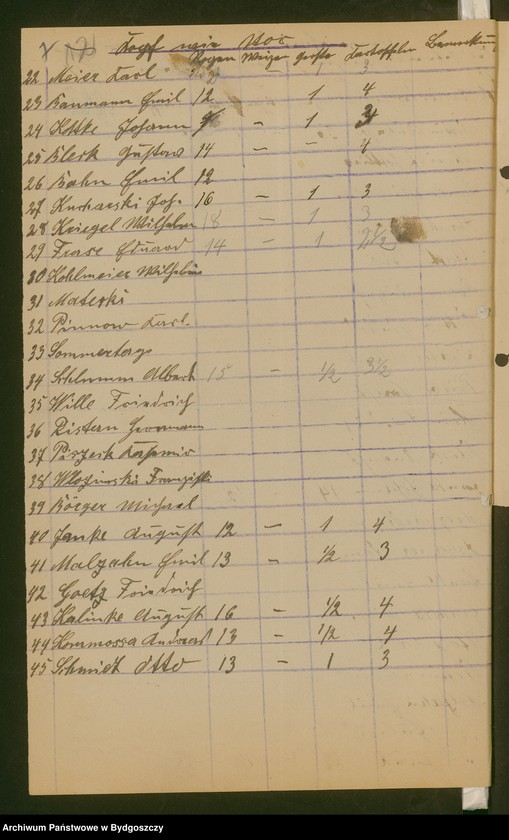 Kopf wie Vor
Rogen Weizen Gerste Kartoffeln Bemerkun
22 Meier Karl 12 – 1 3
23 Baumann Emil 12 1 4
24 Kottke Johann – 1
25 Klerk Gustav 14 – – 4
26 Bahn Emil 12
27 Kucharski Joh. 16 – 1 3
28 Kriegel Wilhelm 18 – 1 3
29 Frase Eduard 14 – 1 2 1/2
30 Kohlmeier Wilhelm
31 Materki
32 Pinnow Karl.
33 Sommertag
34 Schlumm Albert 15 – 1/2 3 1/2
35 Wille Friedrich
36 Ristau Hermann
37 Kasimir
38 Franziska
39 Michael
40 Janke August 12 – 1 4
41 Malzahn Emil 13 – 1/2 3
42 Goetz Friedrich
43 Kalinke August 16 – 1/2 4
44 Kommossa Andreas 13 – 1/2 4
45 Schmidt Otto 13 – 1 3
Archiwum Państwowe w Bydgoszczy